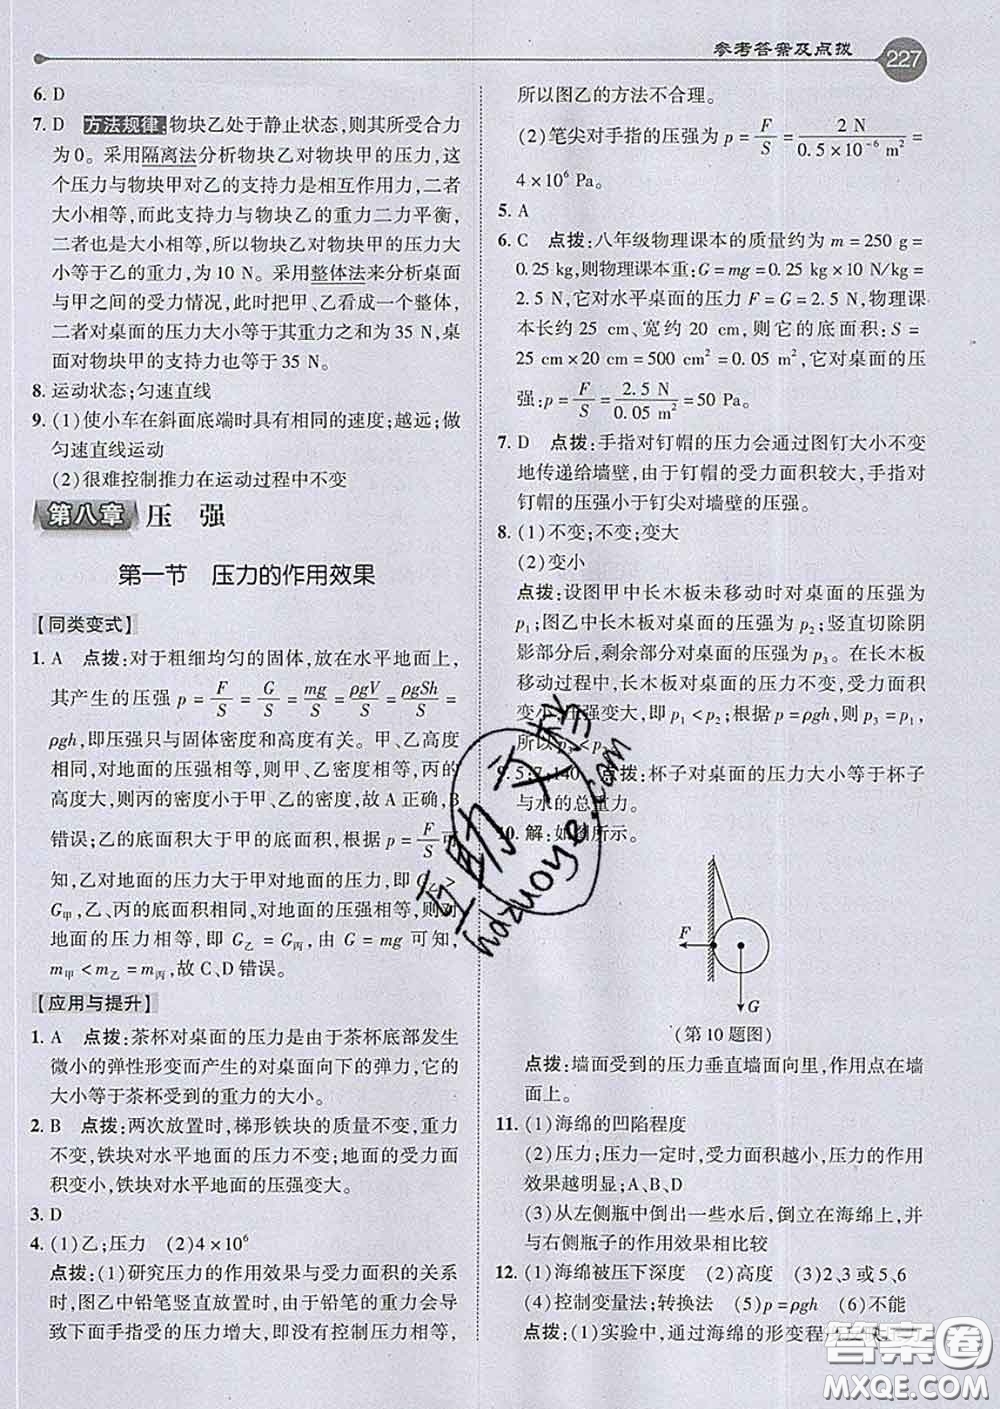 参考答案及点拨
227
6. D
7. D 方法规律:物块乙处于静止状态,则其所受合力
为0。采用隔离法分析物块乙对物块甲的压力,这
个压力与物块甲对乙的支持力是相互作用力,二者
大小相等,而此支持力与物块乙的重力二力平衡,
二者也是大小相等,所以物块乙对物块甲的压力大
小等于乙的重力,为 10 N。采用整体法来分析桌面
与甲之间的受力情况,此时把甲、乙看成一个整体,
二者对桌面的压力大小等于其重力之和为 35 N,桌
面对物块甲的支持力也等于 35 N。
8. 运动状态;匀速直线
9. (1)使小车在斜面底端时具有相同的速度;越远;做
匀速直线运动
(2)很难控制推力在运动过程中不变
第八章 压 强
第一节 压力的作用效果
【同类变式】
1. A 点拨:对于粗细均匀的固体,放在水平地面上,
其产生的压强 p = F/S = G/S = mg/S = ρgV/S = ρgSh/S =
ρgh,即压强只与固体密度和高度有关。甲、乙高度
相同,对地面的压强相等,则甲、乙密度相等,丙的
高度大,则丙的密度小于甲、乙的密度,故 A 正确,B
错误;乙的底面积大于甲的底面积,根据 p = F/S 可
知,乙对地面的压力大于甲对地面的压力,即 G乙>
G甲,乙、丙的底面积相同,对地面的压强相等,则对
地面的压力相等,即 G乙=G丙,由 G = mg 可知,
m甲<m乙=m丙,故 C、D 错误。
【应用与提升】
1. A 点拨:茶杯对桌面的压力是由于茶杯底部发生
微小的弹性形变而产生的对桌面向下的弹力,它的
大小等于茶杯受到的重力的大小。
2. B 点拨:两次放置时,梯形铁块的质量不变,重力
不变,铁块对水平地面的压力不变;地面的受力面
积变小,铁块对水平地面的压强变大。
3. D
4. (1)乙;压力 (2)4×10⁶
点拨:(1)研究压力的作用效果与受力面积的关系
时,图乙中铅笔竖直放置时,由于铅笔的重力会导
致下面手指受的压力增大,即没有控制压力相等,
所以图乙的方法不合理。
(2)笔尖对手指的压强为 p = F/S = 2 N/(0.5×10⁻⁶ m²) =
4×10⁶ Pa。
5. A
6. C 点拨:八年级物理课本的质量约为 m = 250 g =
0.25 kg,则物理课本重:G = mg = 0.25 kg×10 N/kg =
2.5 N,它对水平桌面的压力 F = G = 2.5 N,物理课
本长约 25 cm、宽约 20 cm,则它的底面积:S =
25 cm×20 cm = 500 cm² = 0.05 m²,它对桌面的压
强:p = F/S = 2.5 N/0.05 m² = 50 Pa。
7. D 点拨:手指对钉帽的压力会通过图钉大小不变
地传递给墙壁,由于钉帽的受力面积较大,手指对
钉帽的压强小于钉尖对墙壁的压强。
8. (1)不变;不变;变大
(2)变小
点拨:设图甲中长木板未移动时对桌面的压强为
p₁;图乙中长木板对桌面的压强为 p₂;竖直切除阴
影部分后,剩余部分对桌面的压强为 p₃。在长木板
移动过程中,长木板对桌面的压力不变,受力面积
变小,压强变大,即 p₁<p₂;根据 p = ρgh,则 p₃ = p₁,
所以 p₃<p₂。
9. 5;7;140 点拨:杯子对桌面的压力大小等于杯子
与水的总重力。
10. 解:如图所示。
F
G
(第 10 题图)
点拨:墙面受到的压力垂直墙面向里,作用点在墙
面上。
11. (1)海绵的凹陷程度
(2)压力;压力一定时,受力面积越小,压力的作用
效果越明显;A、B、D
(3)从左侧瓶中倒出一些水后,倒立在海绵上,并
与右侧瓶子的作用效果相比较
12. (1)海绵被压下深度 (2)高度 (3)2、3 或 5、6
(4)控制变量法;转换法 (5)p = ρgh (6)不能
点拨:(1)实验中,通过海绵的形变程
互助文档
hazuoye.com
答案圈
MXQE.COM